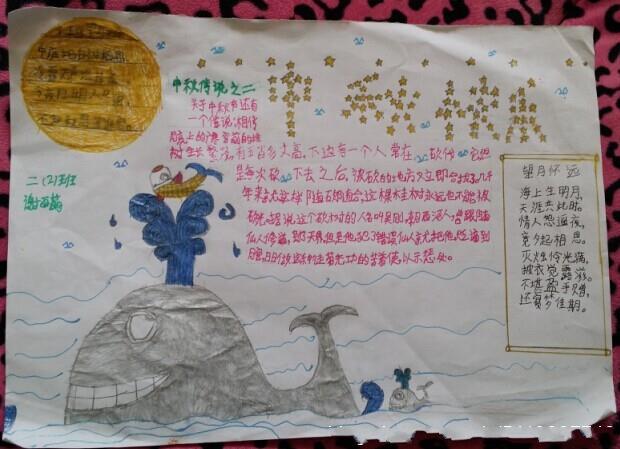 中庭地白树栖鸦
冷露无声湿桂花
今夜月明人尽望
不知秋思落谁家
中秋传说之二
关于中秋节还有
一个传说:相传
月亮上的广寒宫前的桂
树生长繁茂,有五百多丈高,下边有一个人常在砍伐它,但
是每次砍下去之后,被砍的地方又立即合拢了。几千
年来,就这样随砍随合,这棵桂树永远也不能被
砍光。据说这个砍树的人名叫吴刚,
仙人修道,到了天界,但是他犯了错误,仙人就把他贬谪到
月宫,日日做这种徒劳无功的苦差使,以示惩处。
二(2)班
望月怀远
海上生明月,
天涯共此时,
情人怨遥夜,
竟夕起相思。
灭烛怜光满,
披衣觉露滋。
不堪盈手赠,
还寝梦佳期。